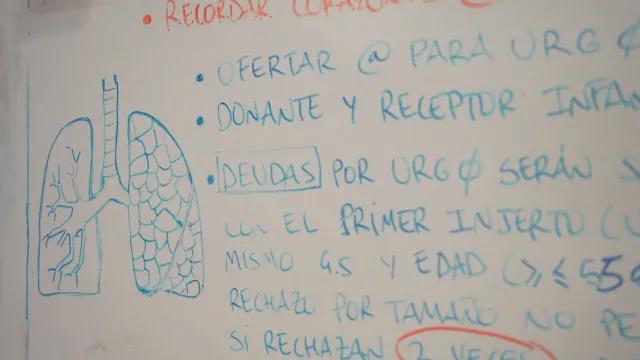 • RECORDAR CORAZON
• OFERTAR @ PARA URG Ø
• DONANTE Y RECEPTOR INFAN
• DEUDAS POR URG Ø SERÁN S
EL PRIMER INJERTO (
MISMO G.S Y EDAD (≥ ≤ 55
RECHAZO POR TAMAÑO NO PE
SI RECHAZAN 2 VECES